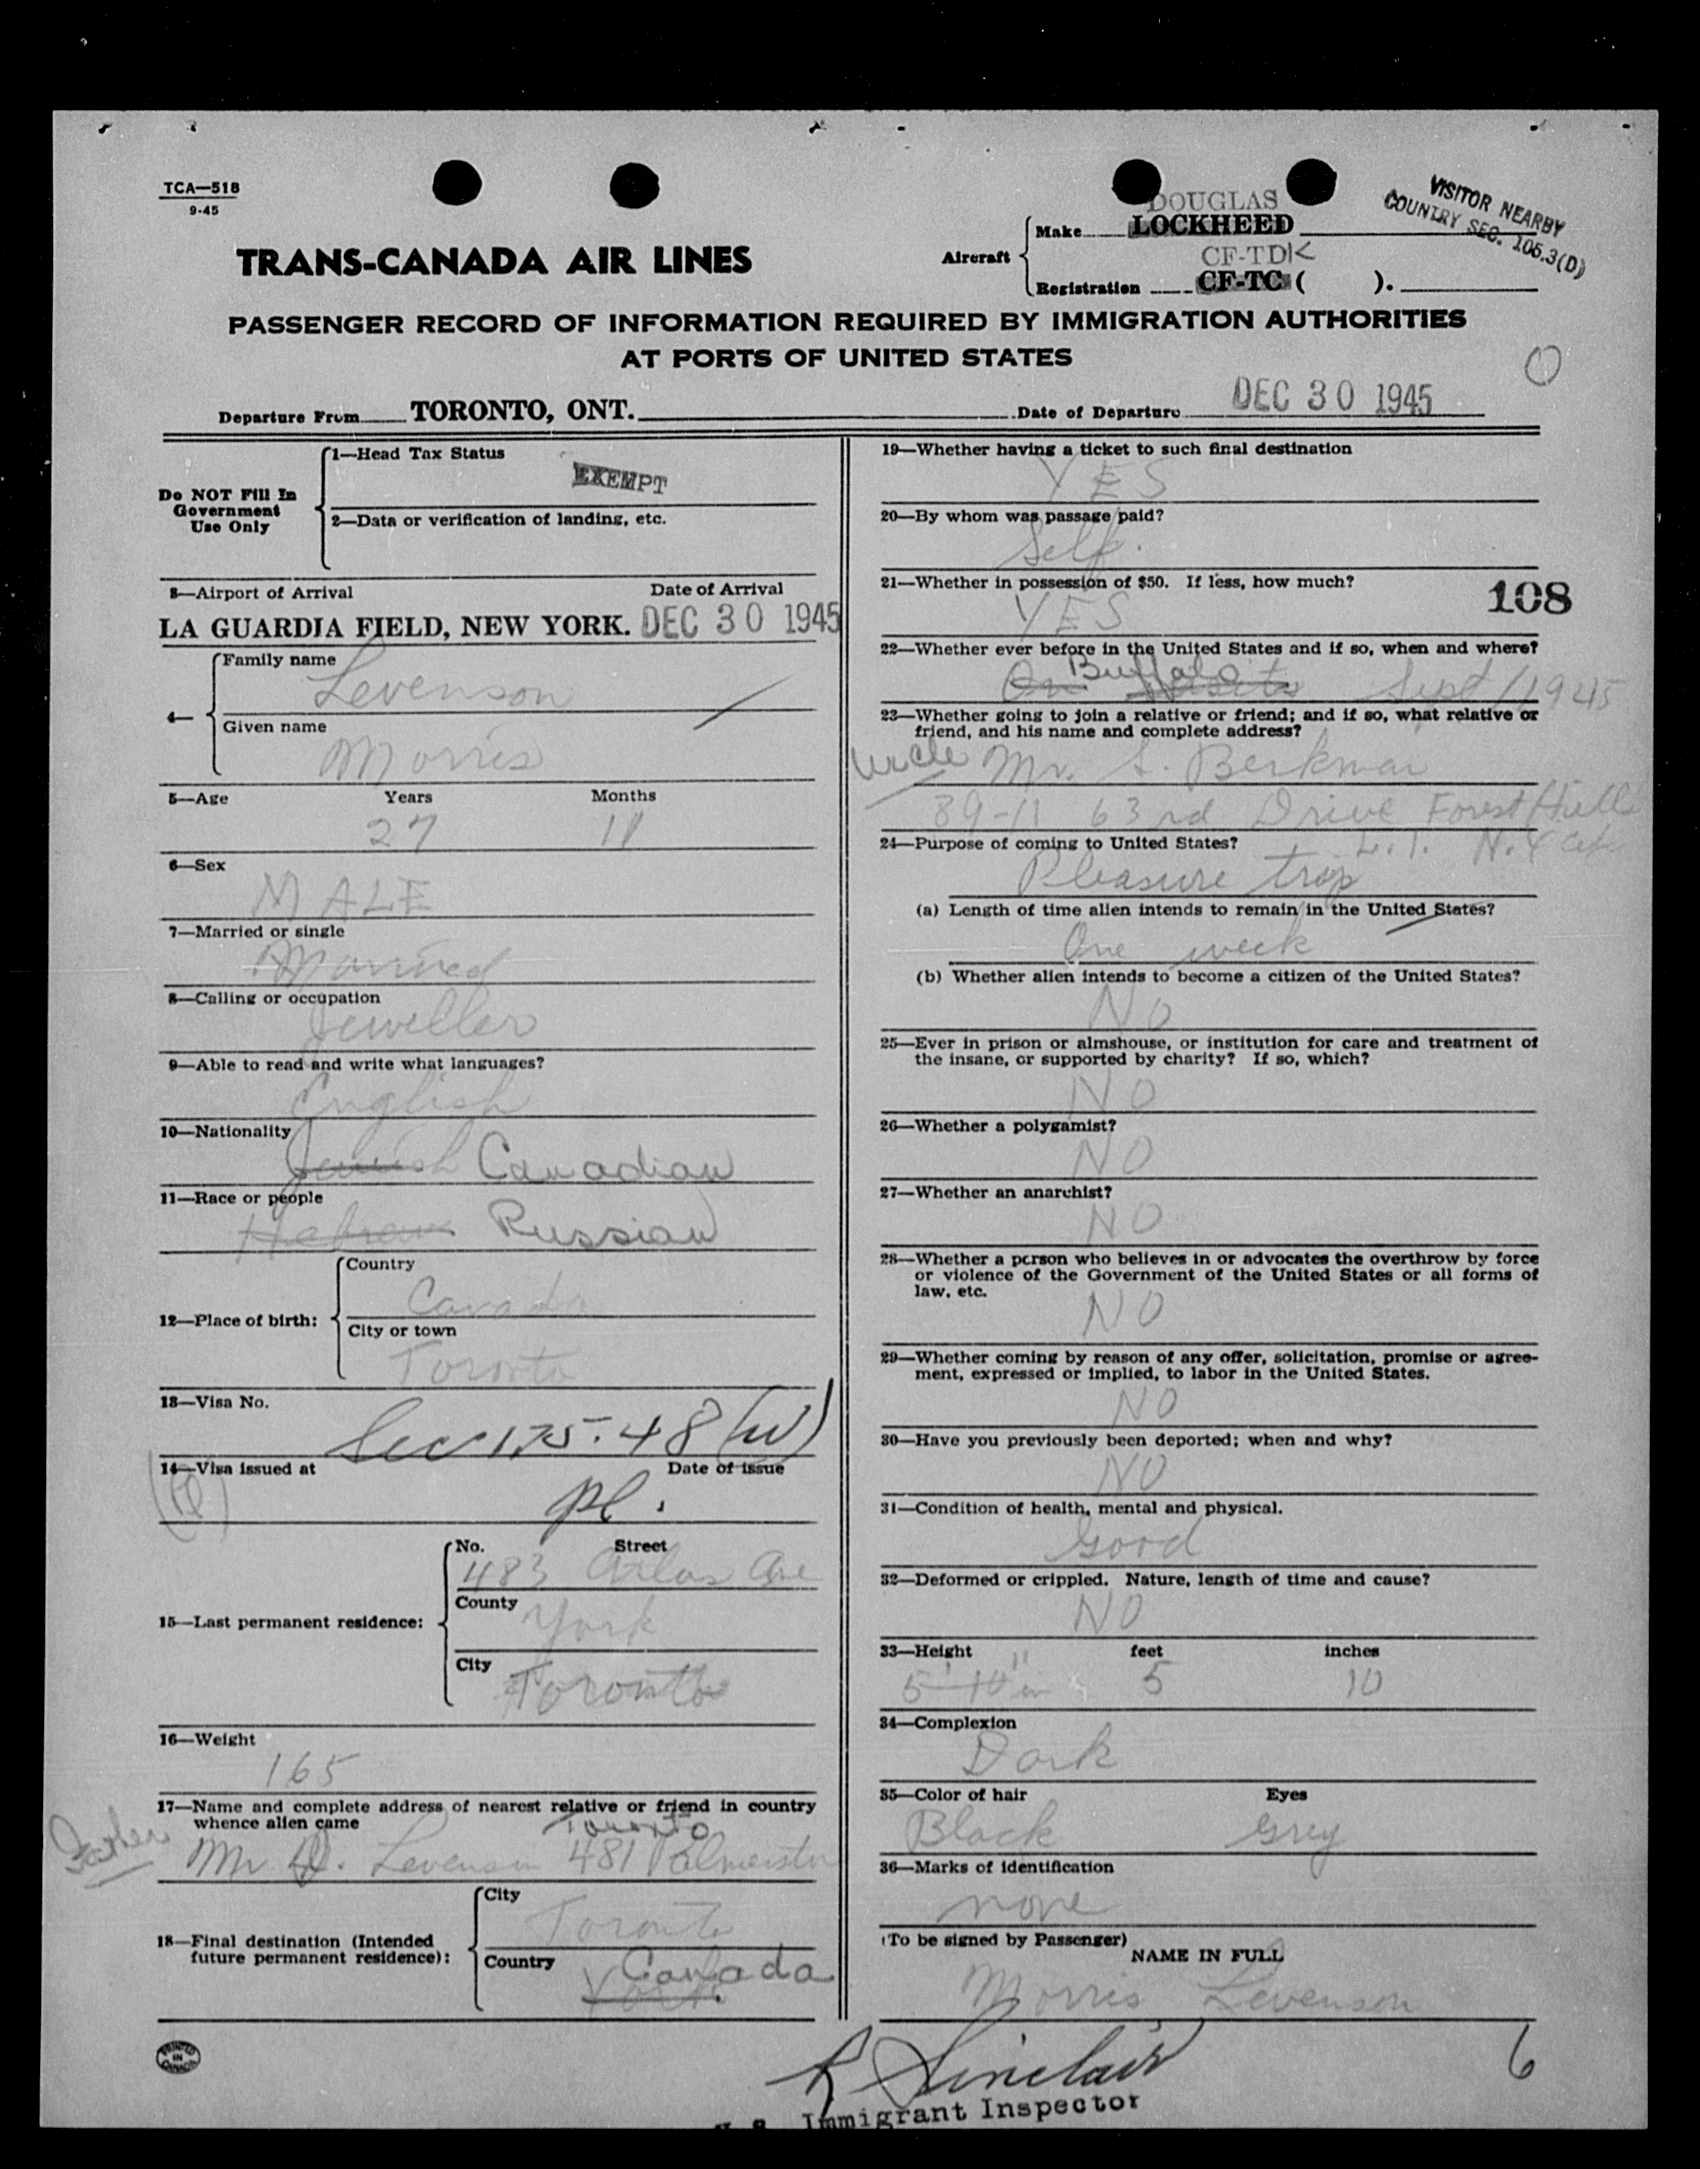 TCA—518
9-45
DOUGLAS
VISITOR NEARBY
COUNTRY SEC. 105.3(D)
Aircraft
Make LOCKHEED
CF-TDK
Registration CF-TC ( ).
TRANS-CANADA AIR LINES
PASSENGER RECORD OF INFORMATION REQUIRED BY IMMIGRATION AUTHORITIES
AT PORTS OF UNITED STATES
Departure From TORONTO, ONT. Date of Departure DEC 30 1945
Do NOT Fill In
Government
Use Only
1—Head Tax Status
EXEMPT
2—Data or verification of landing, etc.
3—Airport of Arrival Date of Arrival
LA GUARDIA FIELD, NEW YORK. DEC 30 1945
4—
Family name
Levenson
Given name
Morris
5—Age Years Months
27 11
6—Sex
MALE
7—Married or single
Married
8—Calling or occupation
Jeweller
9—Able to read and write what languages?
English
10—Nationality
Jewish Canadian
11—Race or people
Hebrew Russian
12—Place of birth:
Country
Canada
City or town
Toronto
13—Visa No.
Sec 175.48 (W)
14—Visa issued at Date of issue
pl.
15—Last permanent residence:
No. Street
483 Atlas Ave
County
York
City
Toronto
16—Weight
165
17—Name and complete address of nearest relative or friend in country
whence alien came
Toronto
Father Mr D. Levenson 481 Palmerston
18—Final destination (Intended
future permanent residence):
City
Toronto
Country
Canada
York
PRINTED
IN
CANADA
19—Whether having a ticket to such final destination
YES
20—By whom was passage paid?
Self.
21—Whether in possession of $50. If less, how much?
YES
108
22—Whether ever before in the United States and if so, when and where?
Buffalo
On visits Sept / 1945
23—Whether going to join a relative or friend; and if so, what relative or
friend, and his name and complete address?
Uncle Mr. S. Berkman
89-11 63rd Drive Forest Hills
L.I. N.Y.
24—Purpose of coming to United States?
Pleasure trip
(a) Length of time alien intends to remain in the United States?
One week
(b) Whether alien intends to become a citizen of the United States?
No
25—Ever in prison or almshouse, or institution for care and treatment of
the insane, or supported by charity? If so, which?
NO
26—Whether a polygamist?
NO
27—Whether an anarchist?
NO
28—Whether a person who believes in or advocates the overthrow by force
or violence of the Government of the United States or all forms of
law, etc.
NO
29—Whether coming by reason of any offer, solicitation, promise or agree-
ment, expressed or implied, to labor in the United States.
NO
30—Have you previously been deported; when and why?
NO
31—Condition of health, mental and physical.
Good
32—Deformed or crippled. Nature, length of time and cause?
NO
33—Height feet inches
5' 10" 5 10
34—Complexion
Dark
35—Color of hair Eyes
Black Grey
36—Marks of identification
none
(To be signed by Passenger)
NAME IN FULL
Morris Levenson
R Sinclair
6
Immigrant Inspector